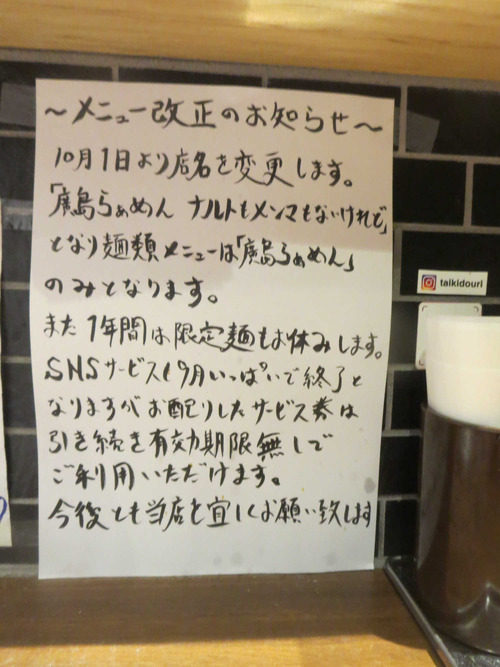 〜メニュー改正のお知らせ〜
10月1日より店名を変更します。
「廣島らぁめん ナルトもメンマもないけれど」
となり麺類メニューは「廣島らぁめん」
のみとなります。
また1年間は限定麺もお休みします。
SNSサービスも9月いっぱいで終了と
なりますがお配りしたサービス券は
引き続き有効期限無しで
ご利用いただけます。
今後とも当店を宜しくお願い致します
taikidouri